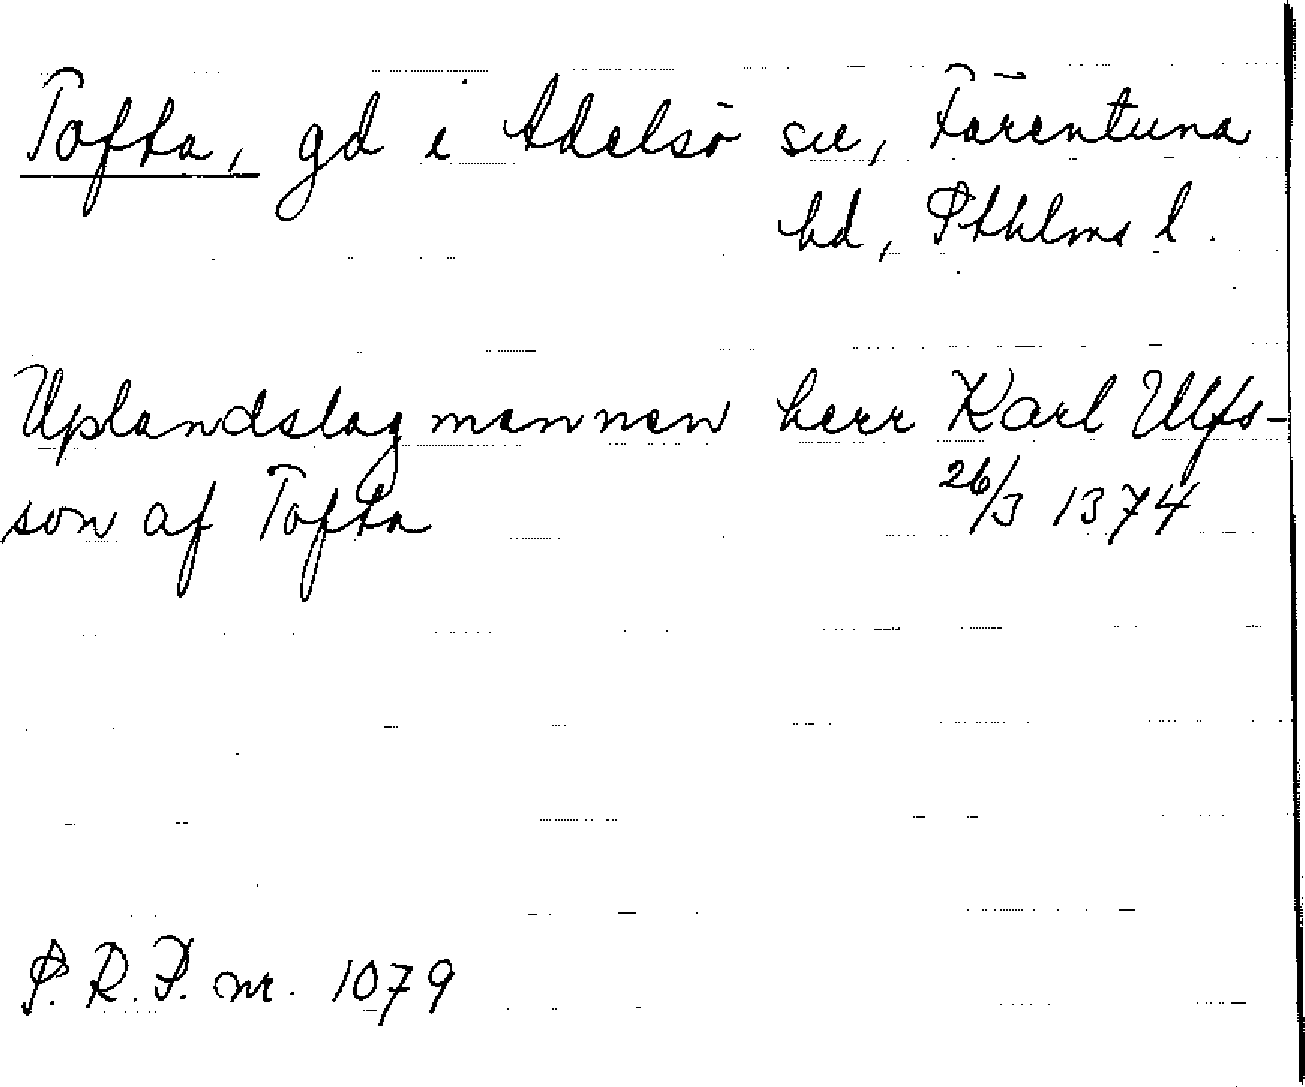 Tofta, gd i Adelsö sn, Färentuna
hd, Sthlms l.
Uplandslagmannen herr Karl Ulfs-
son af Tofta 26/3 1374
S. R. P. nr. 1079